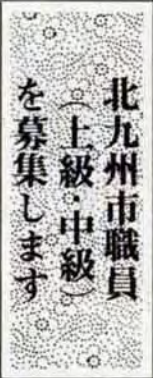 北九州市職員
（上級・中級）
を募集します